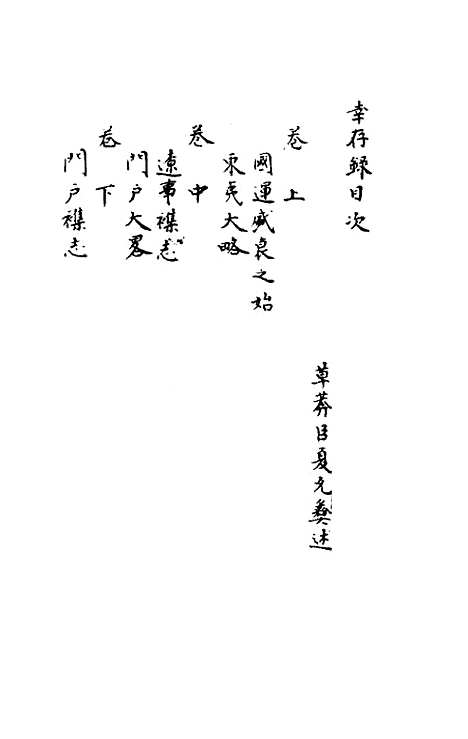 幸存録目次
草莽臣夏允彝述
卷上
國運盛衰之始
東夷大略
卷中
遼事襍志
門户大畧
卷下
門户襍志